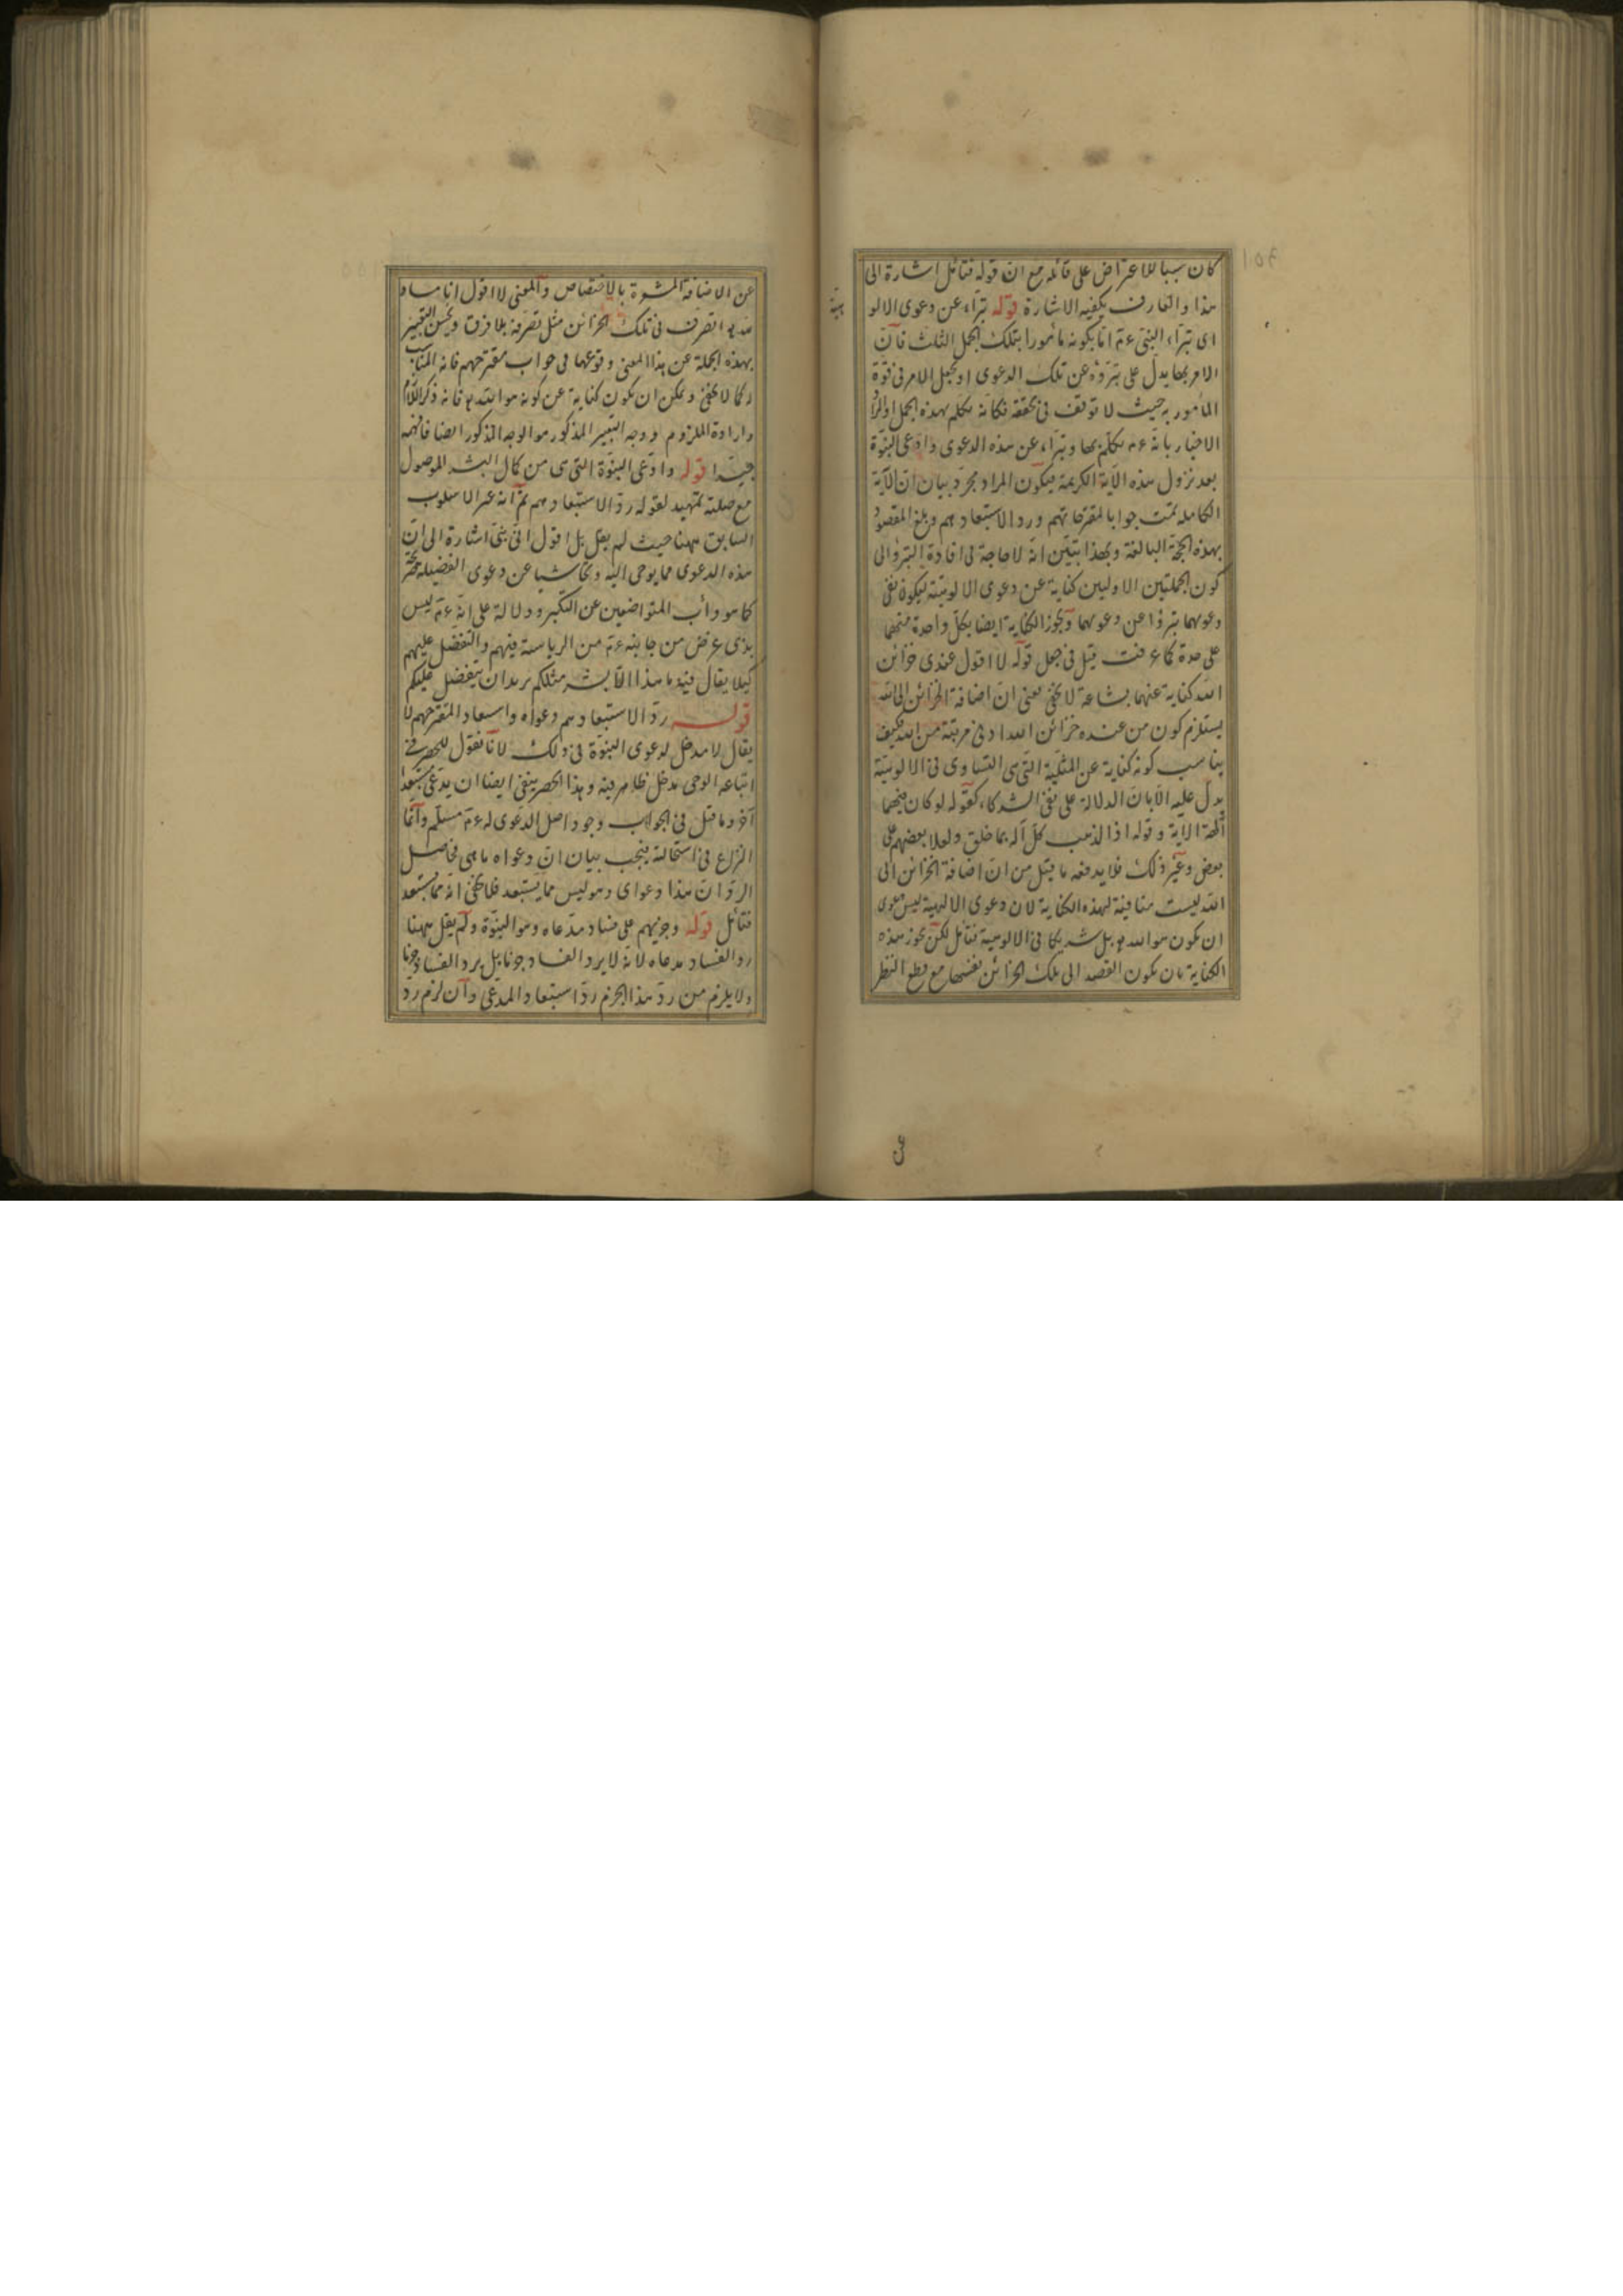 كان سببا للاعتراض على قائله مع ان قوله فتأمل اشارة الى
هذا والعارف يكفيه الاشارة قوله تبرّأ عن دعوى الالو
هية
اى تبرّأ النبى ءم انما بكونه مأمورا بتلك الجمل الثلث فانّ
الامر بها يدلّ على تبرّؤه عن تلك الدعوى او بجعل الامر فى قوّة
المأمور به حيث لا توقف فى تحققه فكأنه تكلم بهذه الجمل او المراد
الاخبار بانّه ءم تكلّم بها وتبرّأ عن هذه الدعوى وادّعى النبوّة
بعد نزول هذه الآية الكريمة فيكون المراد مجرّد بيان انّ الآية
الكاملة تمت جوابا لمقترحاتهم وردّ الاستبعادهم وبلغ المقصود
بهذه الحجّة البالغة وبهذا يتبيّن انّه لا حاجة فى افادة التبرؤ الى
كون الجملتين الاوليين كناية عن دعوى الالوهيّة ليكون نفى
دعوهما تبرؤا عن دعوهما ويجوز الكناية ايضا بكلّ واحدة منهما
على حدة كما عرفت قيل فى جعل قوله لا اقول عندى خزائن
الله كناية عنهما بشاعة لا يخفى يعنى انّ اضافة الخزائن الى الله
يستلزم كون من عنده خزائن الله ادنى مرتبة من الله فكيف
يناسب كونه كناية عن المثليّة التى هى التساوى فى الالوهيّة
يدلّ عليه الآيات الدلالة على نفى الشركاء كقوله لو كان فيهما
آلهة الآية وقوله اذا لذهب كلّ آله بما خلق ولعلا بعضهم على
بعض وغير ذلك فلا يدفعه ما قيل من انّ اضافة الخزائن الى
الله ليست منافية لهذه الكناية لان دعوى الالهية ليس دعوى
ان يكون هو الله بل شريكا فى الالوهية فتأمل لكن يجوز هذه
الكناية بان يكون القصد الى تلك الخزائن نفسها مع قطع النظر
عن الاضافة المشعرة بالاختصاص والمعنى لا اقول انا مساو
لله اتصرّف فى تلك الخزائن مثل تصرّفه بلا فرق ويحسن التعبير
بهذه الجملة عن هذا المعنى وقوعها فى جواب مقترحهم فانه المناسب
كما لا يخفى ويمكن ان يكون كناية عن كونه هو الله فانه ذكر اللازم
واراده الملزوم ووجه التعبير المذكور هو الوجه المذكور ايضا فافهمه
جيّدا قوله وادّعى النبوّة التى هى من كمال البشر الموصول
مع صلته تمهيد لقوله ردّ الاستبعادهم ثمّ انه غير الاسلوب
السابق ههنا حيث لم يقل بل اقول انّى نبىّ اشارة الى انّ
هذه الدعوى مما يوحى اليه وتحاشيا عن دعوى الفضيلة
كما هو دأب المتواضعين عن التكبر ودلالة على انّه ءم ليس
بذى غرض من جانبه ءم من الرياسة فيهم والتفضّل عليهم
كيلا يقال فيه ما هذا الّا بشر مثلكم يريد ان يتفضّل عليكم
قوله ردّ الاستبعادهم دعواه واستبعاد المقترحهم لا
يقال لا مدخل لدعوى النبوّة فى ذلك لانّا نقول للحصر فى
اتباعه الوحى مدخل ظاهر فيه وهذا الحصر ينفى ايضا ان يدّعى مستبعدا
آخر وما قيل فى الجواب وجود اصل الدعوى له ءم مسلّم وانّما
النزاع فى استحالته فيجب بيان انّ دعواه ما هى فحاصل
الردّ انّ هذا دعواى وهو ليس مما يستبعد فلا يخفى انه مما يستبعد
فتأمّل قوله وجزمهم على فساد مدّعاه وهو النبوّة ولم يقل ههنا
ردّ الفساد مدعاه لانّه لا يردّ الفساد جزما بل يردّ الفساد جزما
ولا يلزم من ردّ هذا الجزم ردّ استبعاد المدعى وان لزم ردّ